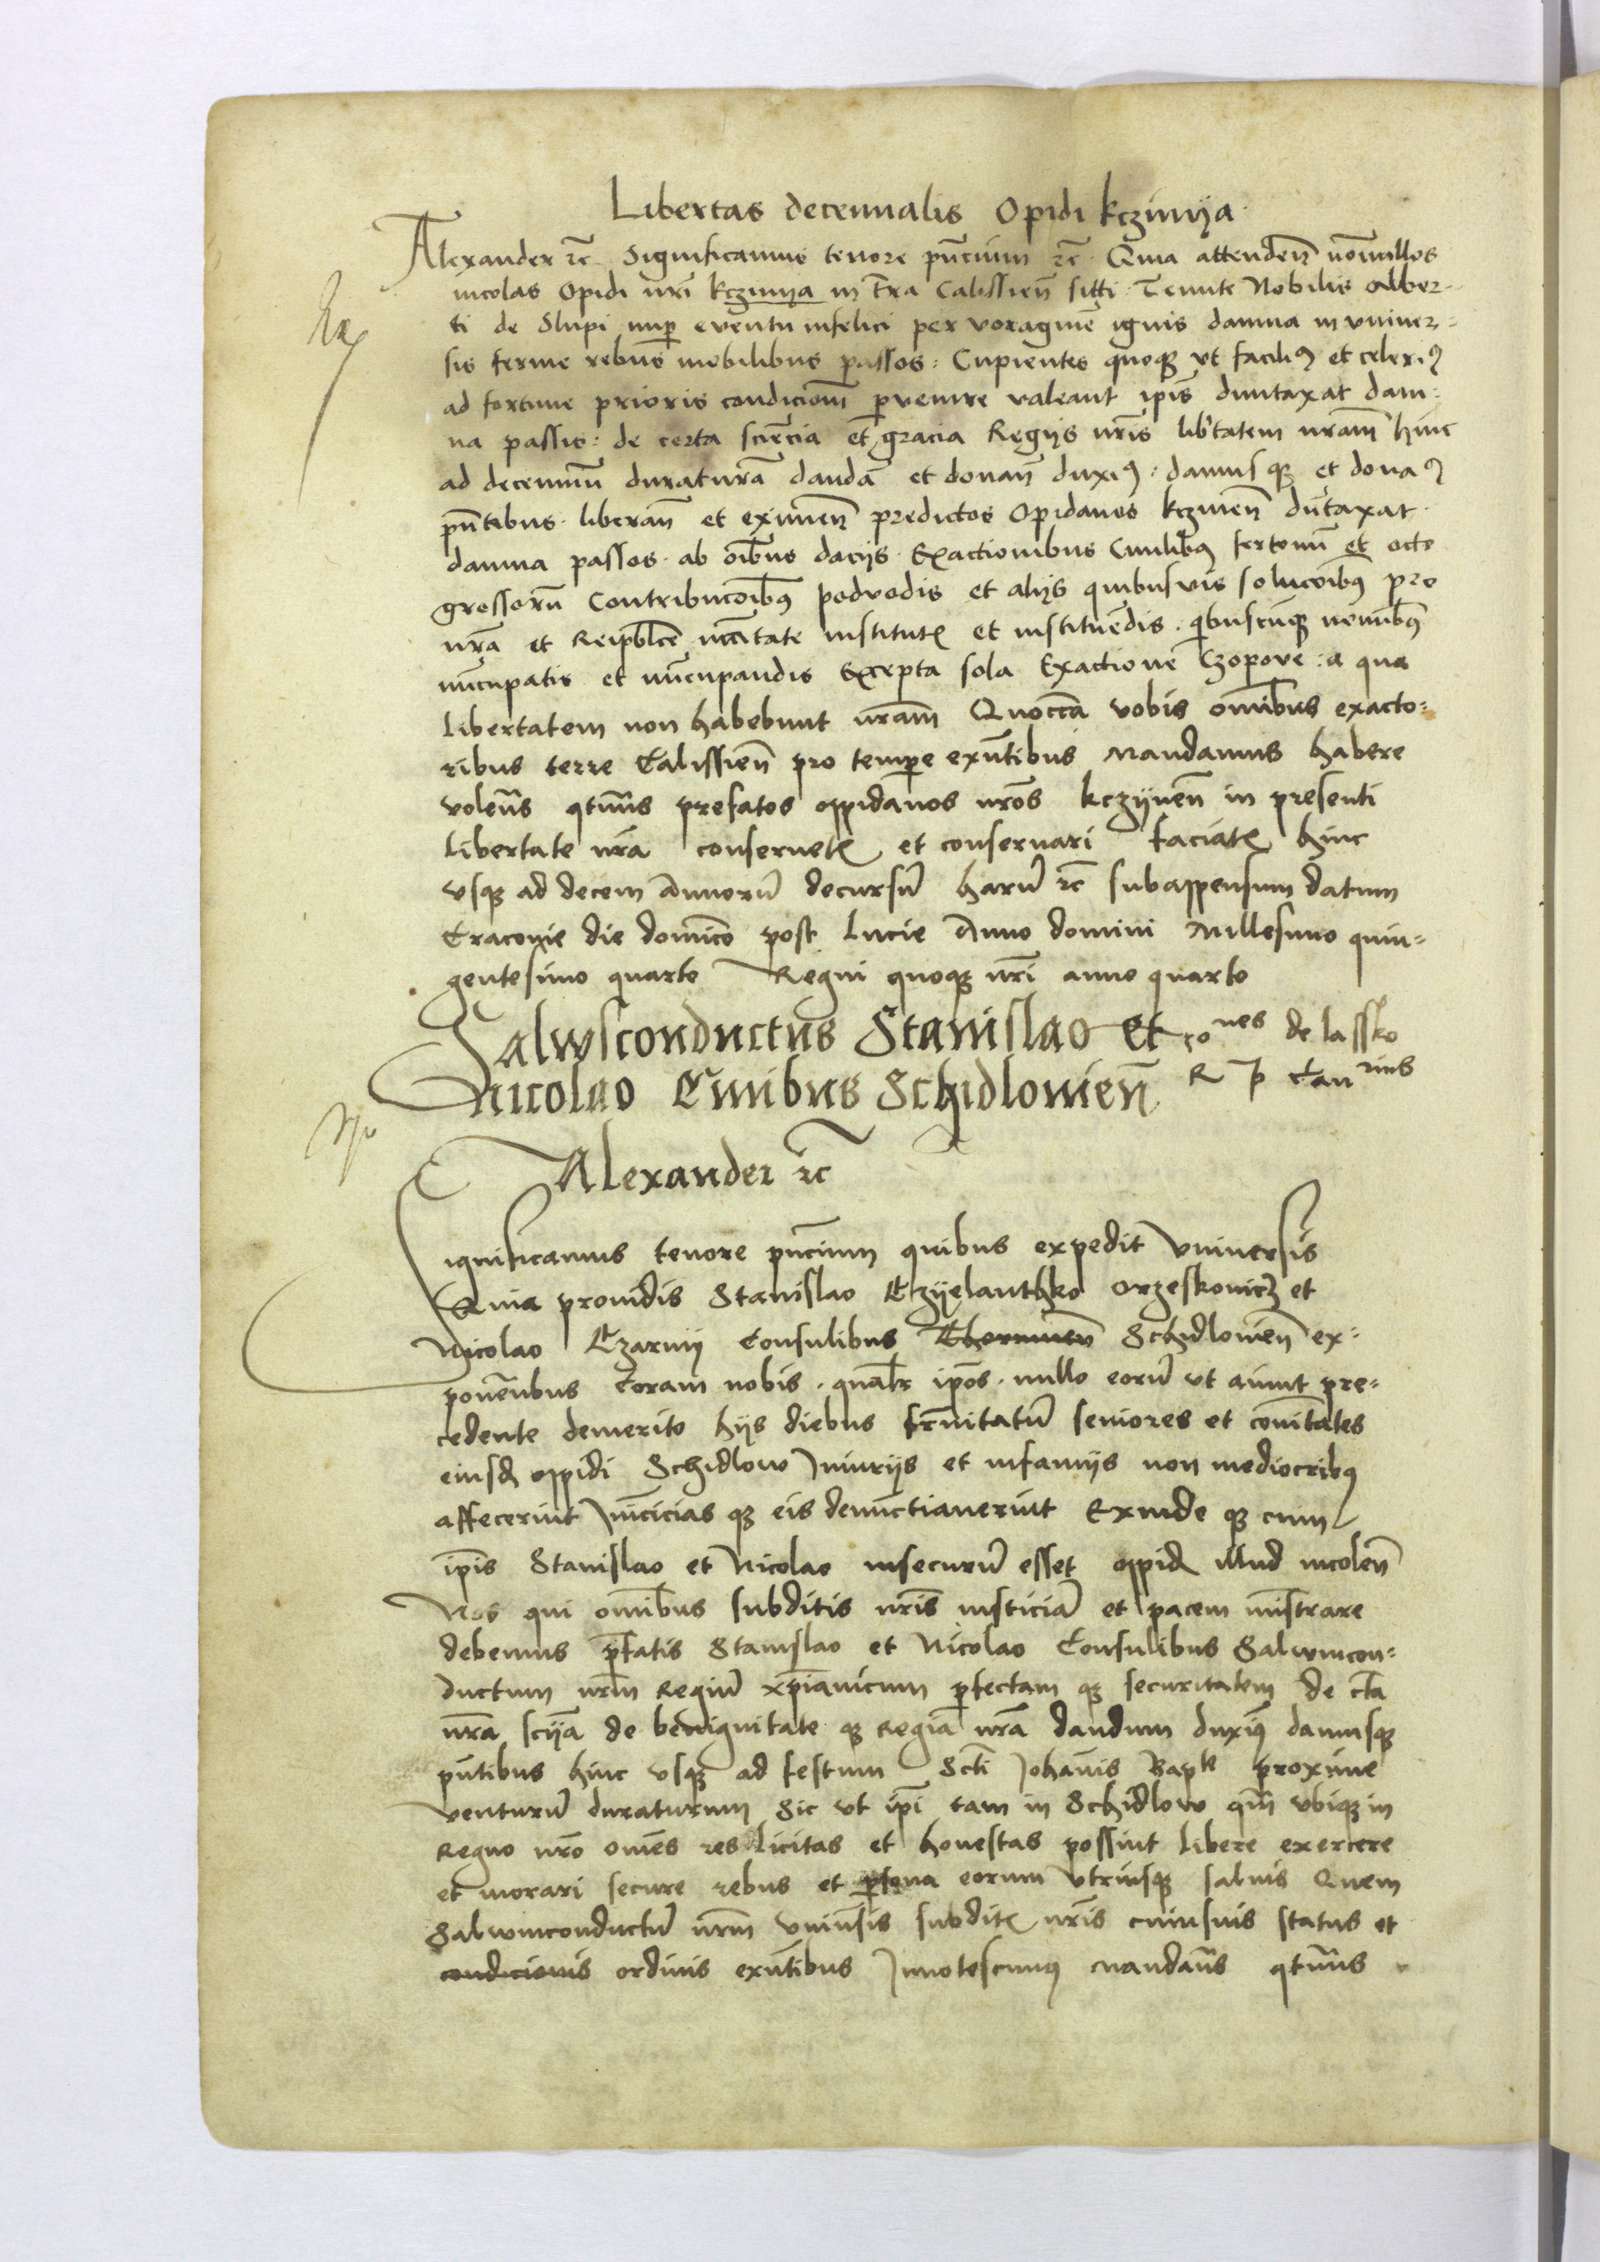 Libertas decennalis Opidi kczinya
Alexander rc̄ Significamus tenore pn̄cium rc̄ Quia attenden̄ nōnnullos
incolas Opidi nr̄i kczinya in t̄ra Calissien̄ sitti Tenute Nobilis Alber-
ti de Slupi nup̄ eventu infelici per voraginē ignis damna in vniuer-
sis ferme rebus mobilibus passos: Cupientes quoqꝫ vt faciliꝰ et celeriꝰ
ad fortune prioris condicionē pervenire valeant ip̄is duntaxat dam-
na passis: de certa sciēcia et gracia Regijs nr̄is lib'tatem nr̄am hinc
ad decenniū duraturā dandā et donan̄ duxiꝰ: damusqꝫ et donaꝰ
pn̄tibus. liberan̄ et eximen̄ predictos Opidanos kczinen̄ dūtaxat
damna passos. ab oībus dacijs. Exactionibus Civilibꝰ fertonū et octo
grossorū Contribucōibꝰ podvodis et alijs quibusvis solucōibꝰ pro
nr̄a et Reipb̄lce nc̄citate institutꝭ et instituēdis. qibuscūqꝫ nōinibꝰ
nūcupatis et nūcupandis Excepta sola Exactione Czopove: a qua
libertatem non habebunt nr̄am Quocc̄a vobis omībus exacto-
ribus terre Calissien̄ pro temp̄e exn̄tibus Mandamus habere
volen̄s qtin̄s prefatos oppidanos nr̄os kczynen̄ in presenti
libertate nr̄a conseruetꝭ et conseruari faciatꝭ hinc
vsqꝫ ad decem Annorū decursū harū rc̄ subappensum datum
Cracovie die domīco post Lucie Anno domini Millesimo quin-
gentesimo quarto Regni quoqꝫ nr̄i anno quarto
Salwsconductus Stanislao et
Nicolao Ciuibus Schidlouien̄
ones de lassko
R P Can rius
Alexander rc̄
Significamus tenore pn̄cium quibus expedit Vniuersis
Quia prouidis Stanislao Czyelanthko Orzeskouicz et
Nicolao Czarny Consulibus Schidlouien̄ ex-
ponen̄ibus Coram nobis. qualr̄ ip̄os. nullo eorū vt aiunt pre-
cedente demerito hijs diebus fr̄nitatū seniores et cōm̄itates
eiusdꝫ oppidi Schidlow Iniurijs et infamijs non mediocribꝰ
affecerint Inīcicias qꝫ eis denūctiauerint Exinde qꝫ cum
ip̄is Stanislao et Nicolao insecurū esset oppidꝫ illud incolen̄
Nos qui omībus subditis nr̄is iusticiā et pacem mīstrare
debemus p̄fatis Stanislao et Nicolao Consulibus Salwmcon-
ductum nr̄m Regiū xp̄ianicum p̄fectam qꝫ securitatem de cta
nr̄a scīia de benignitate qꝫ Regia nr̄a dandum duxiꝰ damusqꝫ
pn̄tibus hinc vsqꝫ ad festum Sct̄i Johānis Bapte proxime
venturū duraturum Sic vt ip̄i tam in Schidlow qm̄ vbiqꝫ in
Regno nr̄o omēs res licitas et honestas possint libere exercere
et morari secure rebus et p̄sona eorum vtriusqꝫ saluis Quem
Salwmconductū nr̄m vniuersis subditꝭ nr̄is cuiusuis status et
condicionis ordinis exn̄tibus Innotescimꝰ Mandan̄s qtin̄s